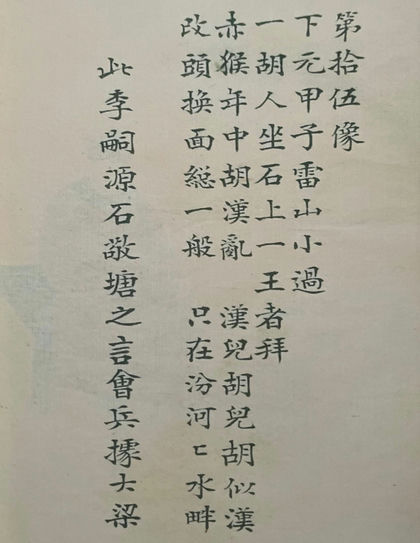 第拾伍像
下元甲子雷山小過
一胡人坐石上一王者拜
赤猴年中胡漢亂 漢兒胡兒胡似漢
改頭換面総一般 只在汾河匕水畔
此李嗣源石敬塘之言會兵據大梁